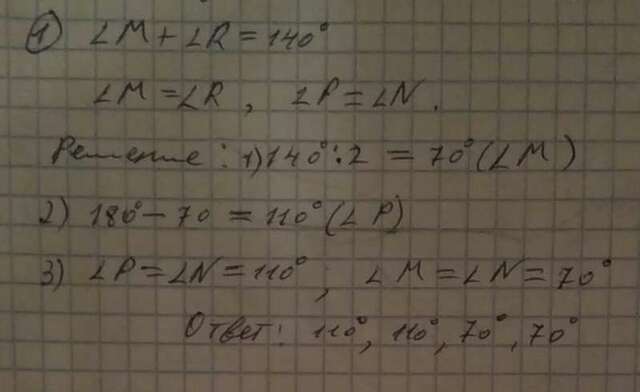 ① ∠M + ∠R = 140°
∠M = ∠R, ∠P = ∠N.
Решение: 1) 140°:2 = 70° (∠M)
2) 180° - 70 = 110° (∠P)
3) ∠P = ∠N = 110°; ∠M = ∠N = 70°
Ответ: 110°, 110°, 70°, 70°